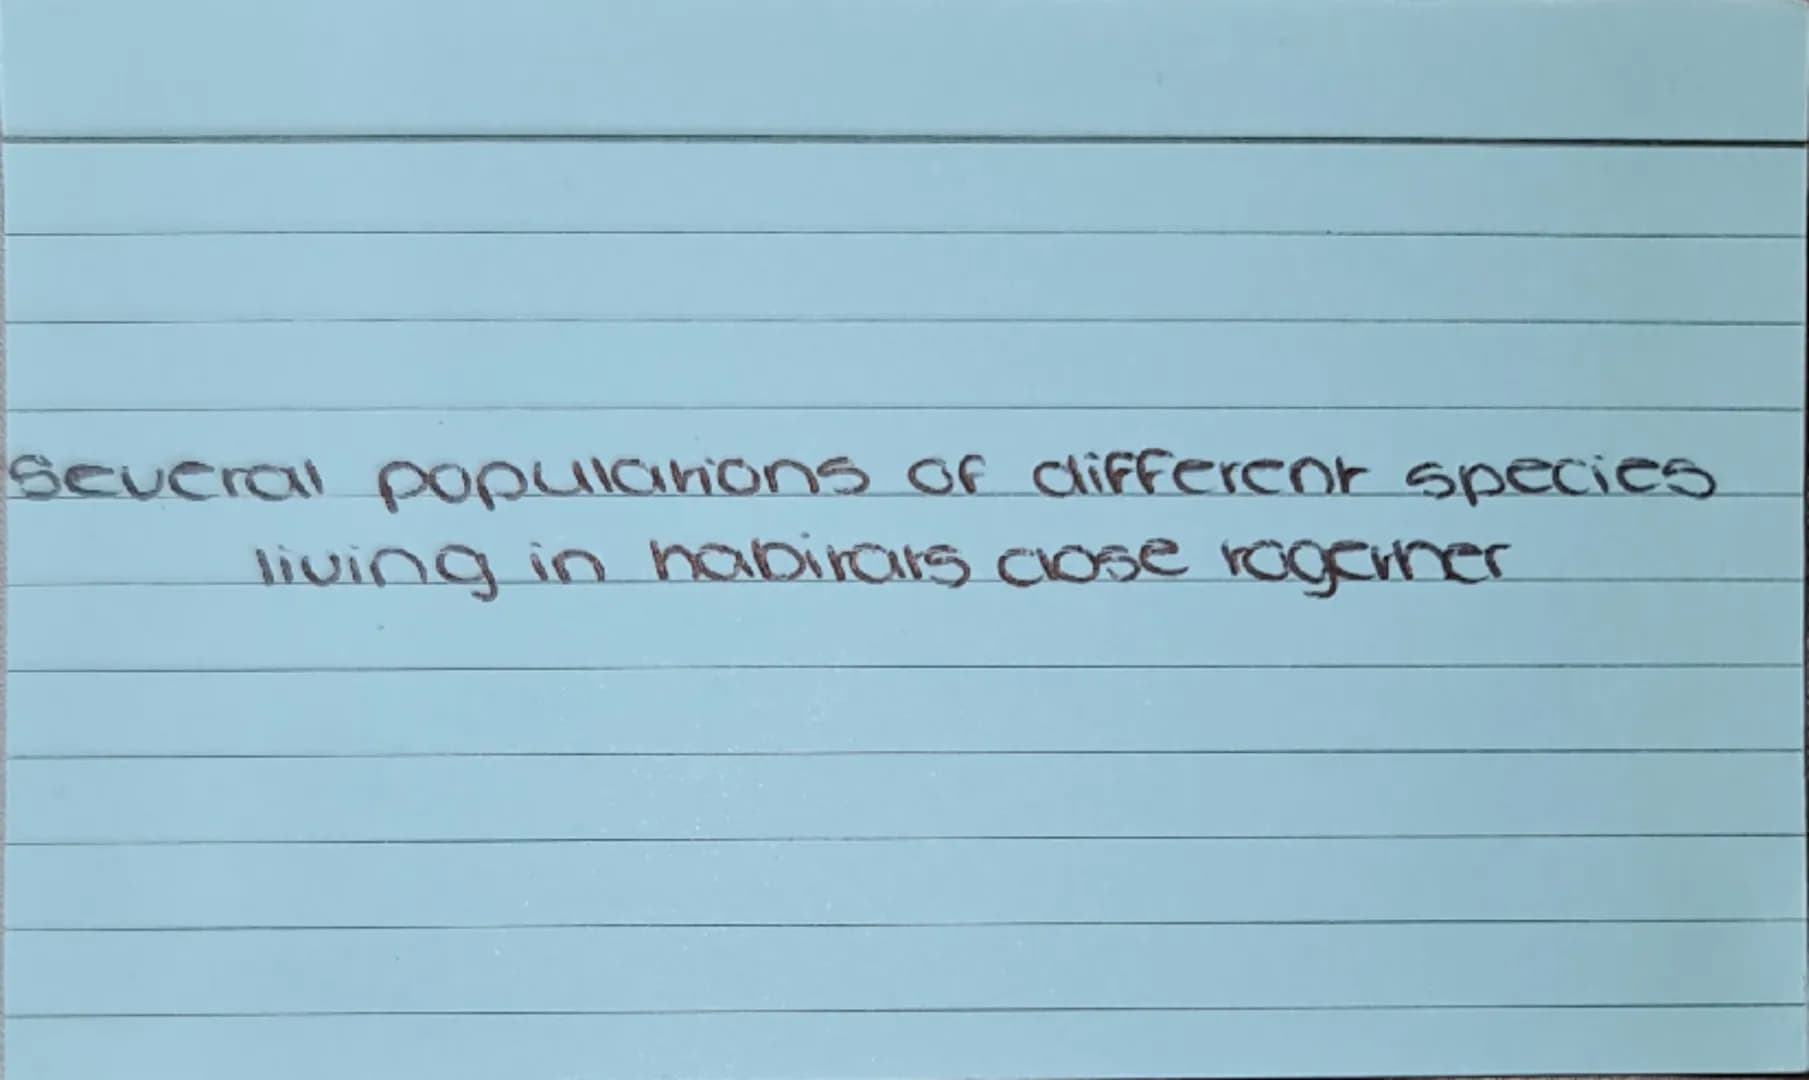 Several populations of different species
living in habitats close together